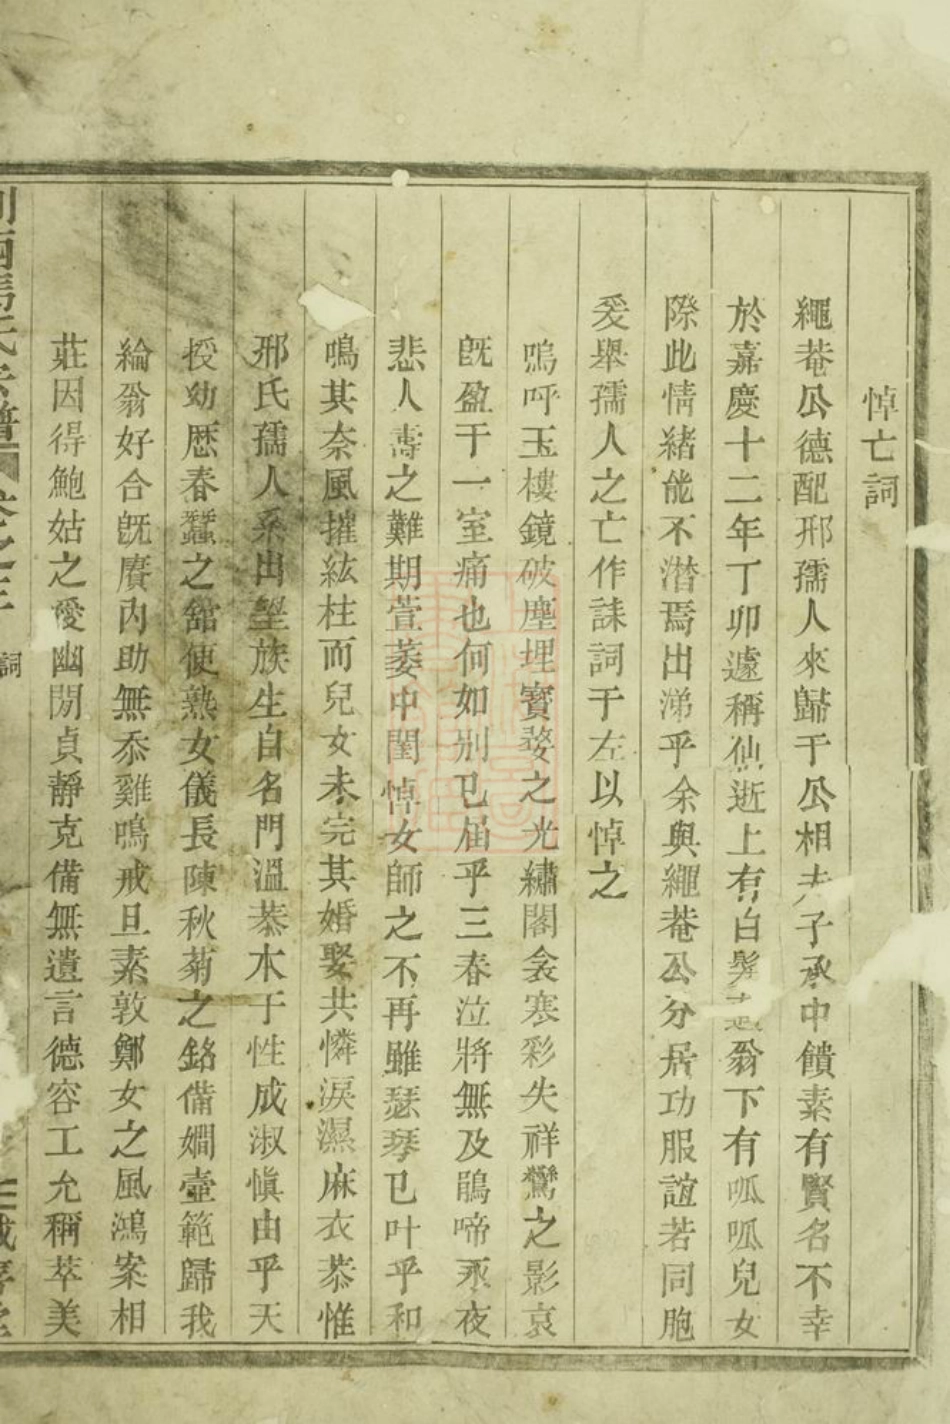 悼亡詞
繩菴公德配邢孺人來歸于公相夫子承中饋素有賢名不幸
於嘉慶十二年丁卯遽稱仙逝上有白髮翁下有呱呱兒女
際此情緒能不潸焉出涕乎余與繩菴公分居功服誼若同胞
爰舉孺人之亡作誄詞于左以悼之
嗚呼玉樓鏡破塵埋寶婺之光繡閣衾寒彩失祥鸞之影哀
既盈于一室痛也何如別已屆乎三春泣將無及鵑啼永夜
悲人壽之難期萱萎中閨悼女師之不再雖瑟琴已叶乎和
鳴其奈風摧絃柱而兒女未完其婚娶共憐淚濕麻衣恭惟
邢氏孺人系出望族生自名門溫恭本于性成淑愼由乎天
授幼歷春蠶之舘使熟女儀長陳秋菊之銘備嫻壼範歸我
綸翁好合既賡內助無忝雞鳴戒旦素敦鄭女之風鴻案相
莊因得鮑姑之愛幽閒貞靜克備無遺言德容工允稱萃美
西馬氏宗譜 卷之 詞